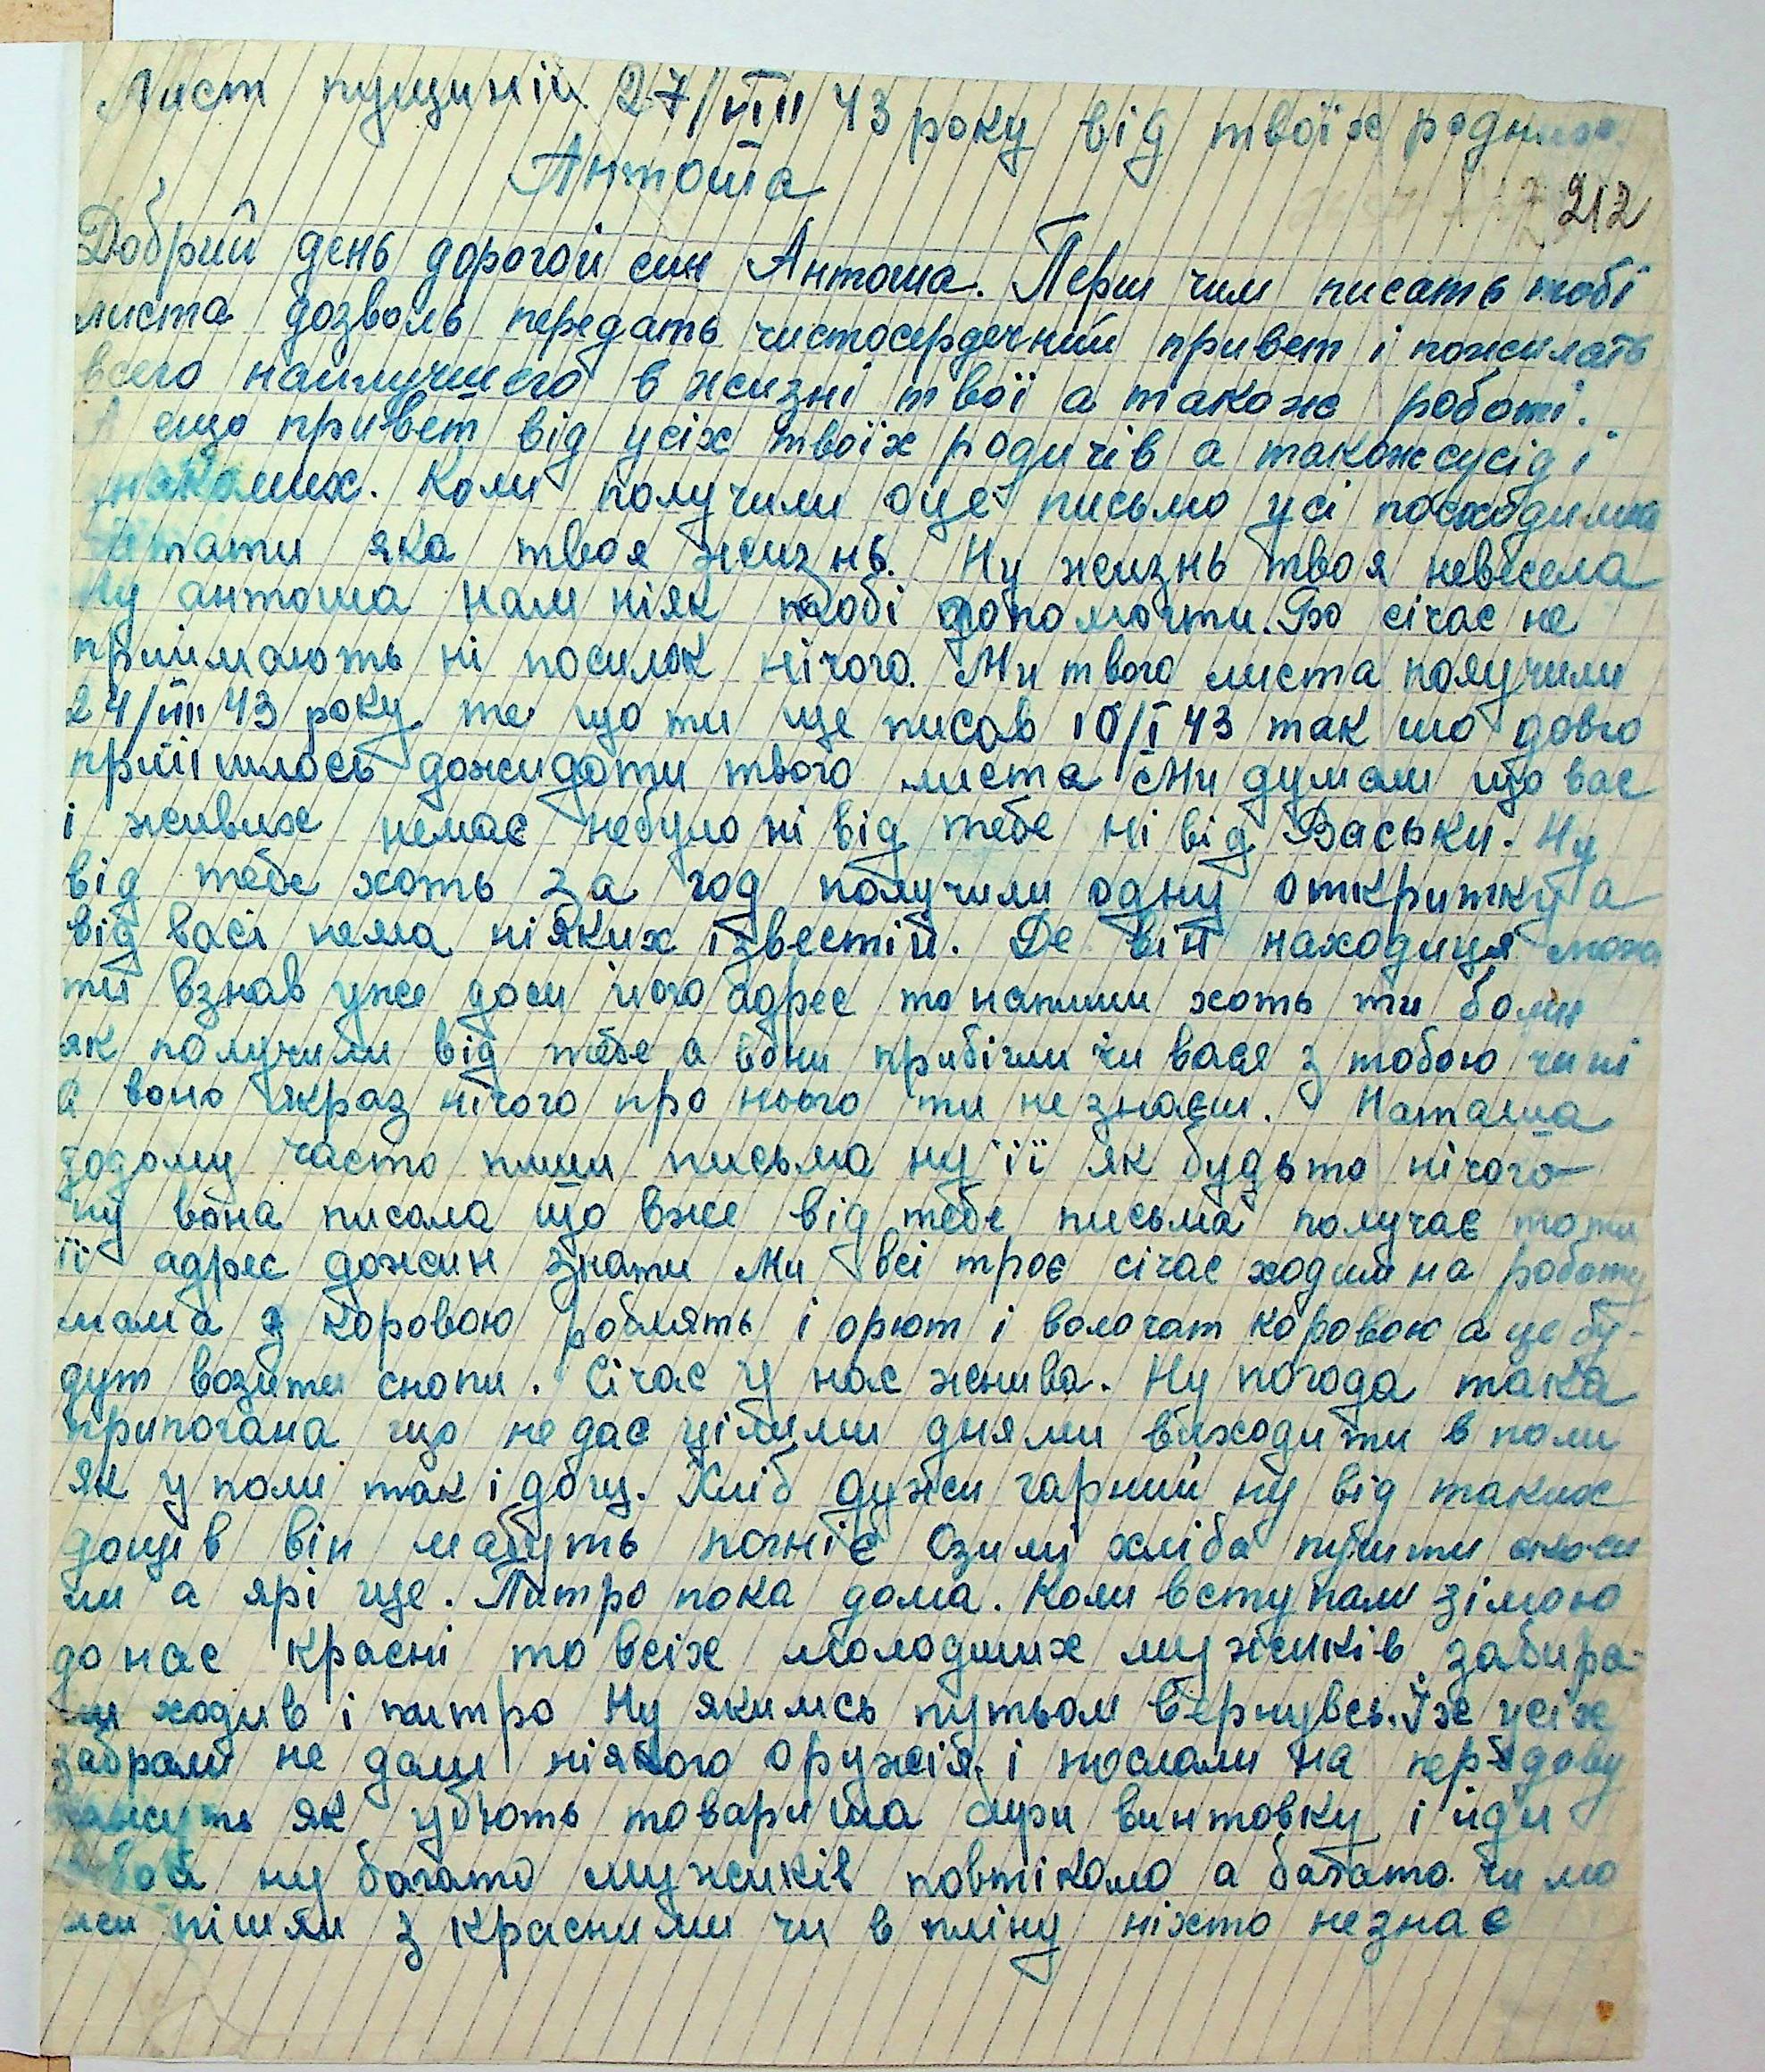 Лист пущиній 27/VIII 43 року від твоїх родних
Антоша
212
Добрий день дорогой син Антоша. Перш чим писать тобі
листа дозволь передать чистосердечний привет і пожилать
всего наилучшего в жизні твої а також роботі.
А ещо привет від усіх твоїх родичів а також сусід і
знакомих. Коли получили оце письмо усі посходились
читати яка твоя жизнь. Ну жизнь твоя невесела
Ну антоша нам ніяк тобі допомогти. Бо січас не
приймають ні посилок нічого. Ми твого листа получили
24/VIII 43 року те що ти ще писав 10/I 43 так шо довго
прийшлось дожидати твого листа Ми думали що вас
і живих немає небуло ні від тебе ні від Васьки. Ну
від тебе хоть за год получили одну открытку а
від васі нема ніяких ізвестій. Де він находиця може
ти взнав уже доси його адрес то напиши хоть ти бо ми
як получили від тебе а вони прибігли чи вася з тобою чи ні
а воно якраз нічого про нього ти не знаєш. Наташа
додому часто пиши письма ну її як будьто нічого
ну вона писала що вже від тебе письма получає то ти
її адрес дожин знати Ми всі троє січас ходим на роботу
мама з коровою роблять і орют і волочат коровою а це бу-
дут возити снопи. Січас у нас жнива. Ну погода така
припогана що не дає цілими днями виходити в поли
як у поли так і дощ. Хліб дужи гарний ну від таких
дощів він мабуть погніє Озимі хліба
ли а ярі ще. Питро пока дома. Коли вступали зімою
до нас красні то всіх молодших мужиків забира-
ли ходив і питро Ну якимсь путьом вернувсь. Їх усіх
забрали не дали ніякого оружія і послали на передову
кажуть як убють товариша бери винтовку і йди
в бой ну багато мужиків повтікало а багато чи мо
жи пішли з красними чи в пліну ніхто незнає